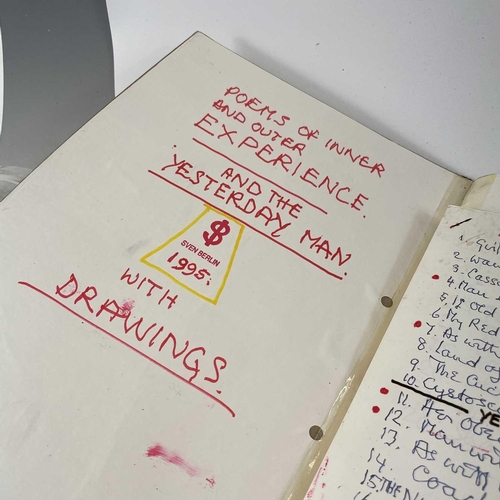 POEMS OF INNER
AND OUTER
EXPERIENCE.
AND THE
YESTERDAY MAN.
SVEN BERLIN
1995.
WITH
DRAWINGS.
1.
2.
3.
4. Man
5. If Old
6. My Red
7. As with
8. Land of
9. The
10.
YE
11. Her
12. Man
13. As with
14.
15. THE